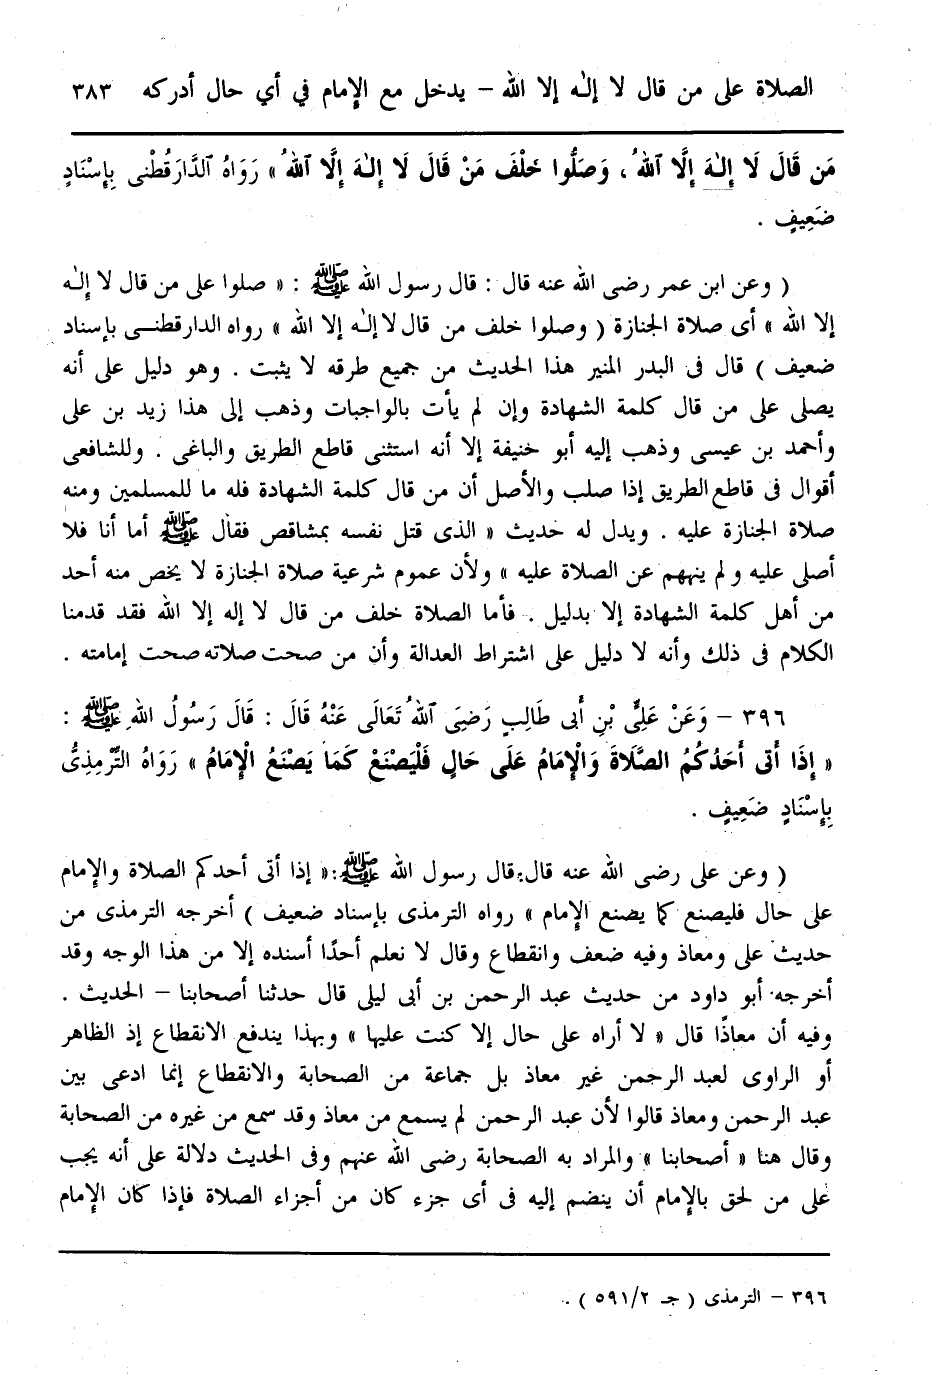 الصلاة على من قال لا إلٰه إلا الله – يدخل مع الإمام في أي حال أدركه ٣٨٣
مَن قَالَ لَا إِلٰهَ إلَّا اللهُ ، وَصَلُّوا خَلْفَ مَنْ قَالَ لَا إِلٰهَ إلَّا اللهُ » رَوَاهُ الدَّارَقُطْنى بِإِسْنَادٍ
ضَعِيفٍ .
( وعن ابن عمر رضى الله عنه قال : قال رسول الله ﷺ : « صلوا على من قال لا إلٰه
إلا الله » أى صلاة الجنازة ( وصلوا خلف من قال لا إلٰه إلا الله » رواه الدارقطنـى بإسناد
ضعيف ) قال فى البدر المنير هذا الحديث من جميع طرقه لا يثبت . وهو دليل على أنه
يصلى على من قال كلمة الشهادة وإن لم يأت بالواجبات وذهب إلى هذا زيد بن على
وأحمد بن عيسى وذهب إليه أبو حنيفة إلا أنه استثنى قاطع الطريق والباغى . وللشافعى
أقوال فى قاطع الطريق إذا صلب والأصل أن من قال كلمة الشهادة فله ما للمسلمين ومنه
صلاة الجنازة عليه . ويدل له حديث « الذى قتل نفسه بمشاقص فقال ﷺ أما أنا فلا
أصلى عليه ولم ينههم عن الصلاة عليه » ولأن عموم شرعية صلاة الجنازة لا يخص منه أحد
من أهل كلمة الشهادة إلا بدليل . فأما الصلاة خلف من قال لا إله إلا الله فقد قدمنا
الكلام فى ذلك وأنه لا دليل على اشتراط العدالة وأن من صحت صلاته صحت إمامته .
٣٩٦ – وَعَنْ عَلِىِّ بْنِ أَبى طَالِبٍ رَضِىَ اللهُ تَعَالَى عَنْهُ قَالَ : قَالَ رَسُولُ اللهِ ﷺ :
« إِذَا أتى أَحَدُكُمُ الصَّلَاةَ وَالْإِمَامُ عَلَى حَالٍ فَلْيَصْنَعْ كَمَا يَصْنَعُ الْإِمَامُ » رَوَاهُ التِّرْمِذِىُّ
بِإِسْنَادٍ ضَعِيفٍ .
( وعن على رضى الله عنه قال : قال رسول الله ﷺ : « إذا أتى أحدكم الصلاة والإمام
على حال فليصنع كما يصنع الإمام » رواه الترمذى بإسناد ضعيف ) أخرجه الترمذى من
حديث على ومعاذ وفيه ضعف وانقطاع وقال لا نعلم أحدًا أسنده إلا من هذا الوجه وقد
أخرجه أبو داود من حديث عبد الرحمن بن أبى ليلى قال حدثنا أصحابنا – الحديث .
وفيه أن معاذًا قال « لا أراه على حال إلا كنت عليها » وبهذا يندفع الانقطاع إذ الظاهر
أو الراوى لعبد الرحمن غير معاذ بل جماعة من الصحابة والانقطاع إنما ادعى بين
عبد الرحمن ومعاذ قالوا لأن عبد الرحمن لم يسمع من معاذ وقد سمع من غيره من الصحابة
وقال هنا « أصحابنا » والمراد به الصحابة رضى الله عنهم وفى الحديث دلالة على أنه يجب
على من لحق بالإمام أن ينضم إليه فى أى جزء كان من أجزاء الصلاة فإذا كان الإمام
٣٩٦ – الترمذى ( جـ ٢/ ٥٩١ ) .